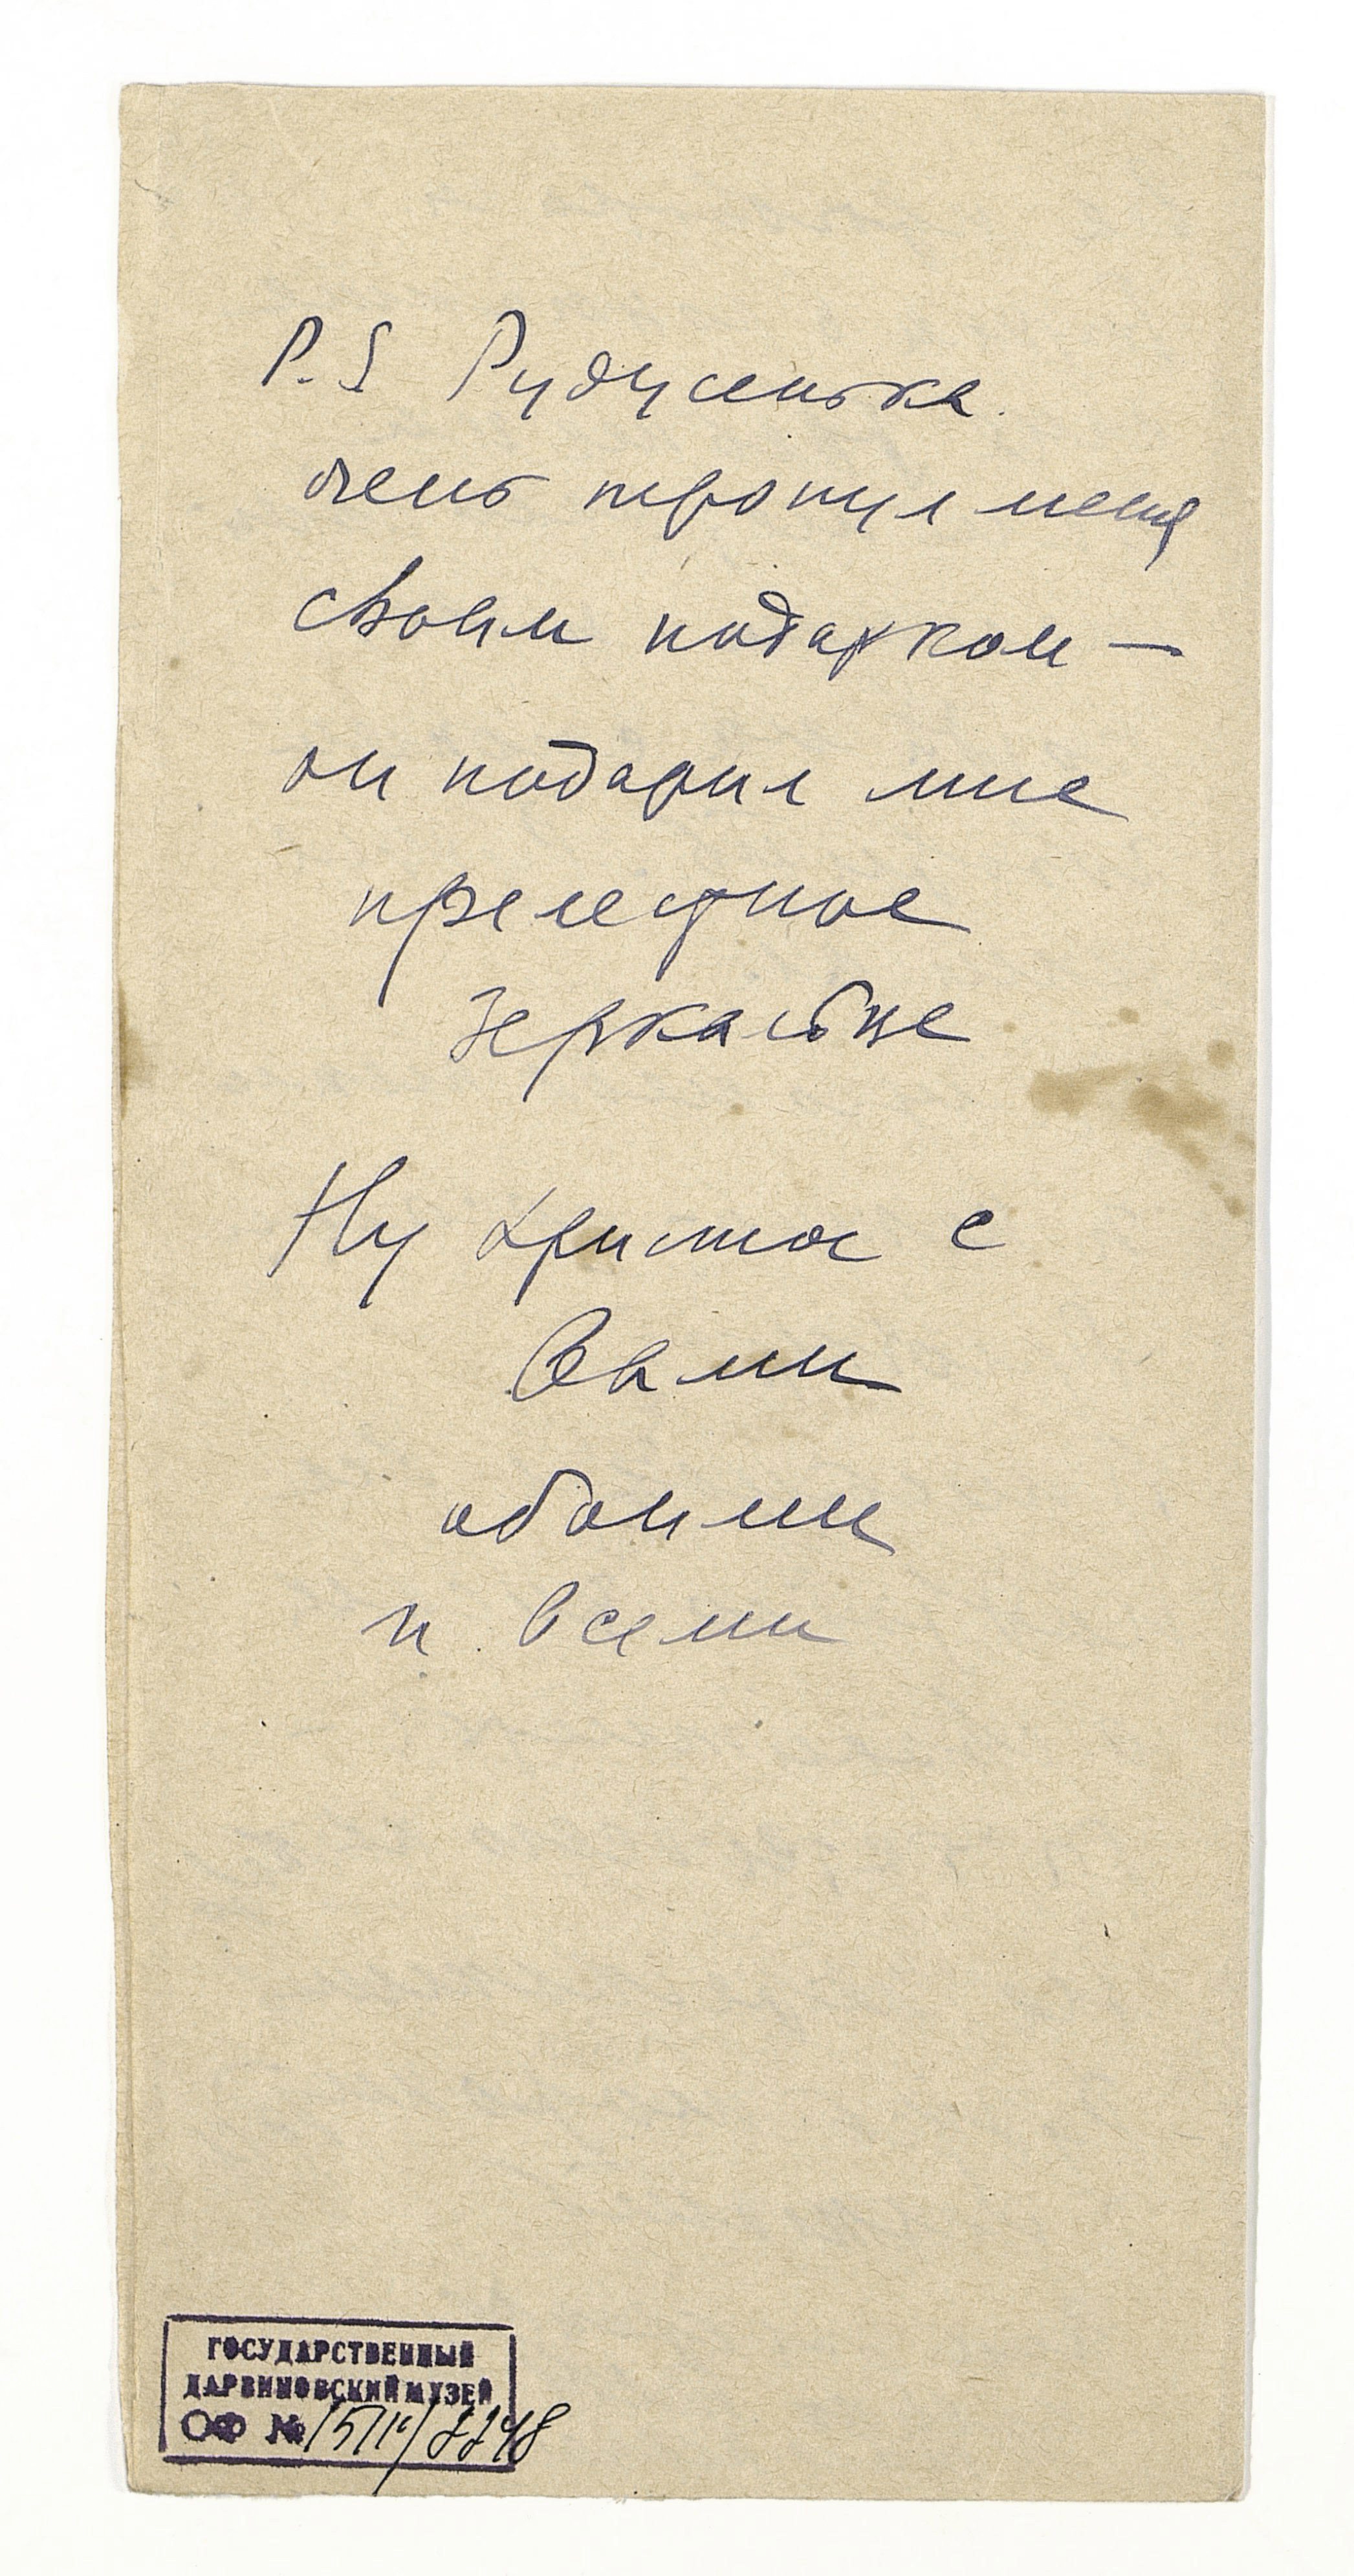 P.S Рудусенька
очень тронул меня
своим подарком —
он подарил мне
прелестное
зеркальце
Ну Христос с
Вами
обоими
и всеми
ГОСУДАРСТВЕННЫЙ
ДАРВИНОВСКИЙ МУЗЕЙ
ОФ №